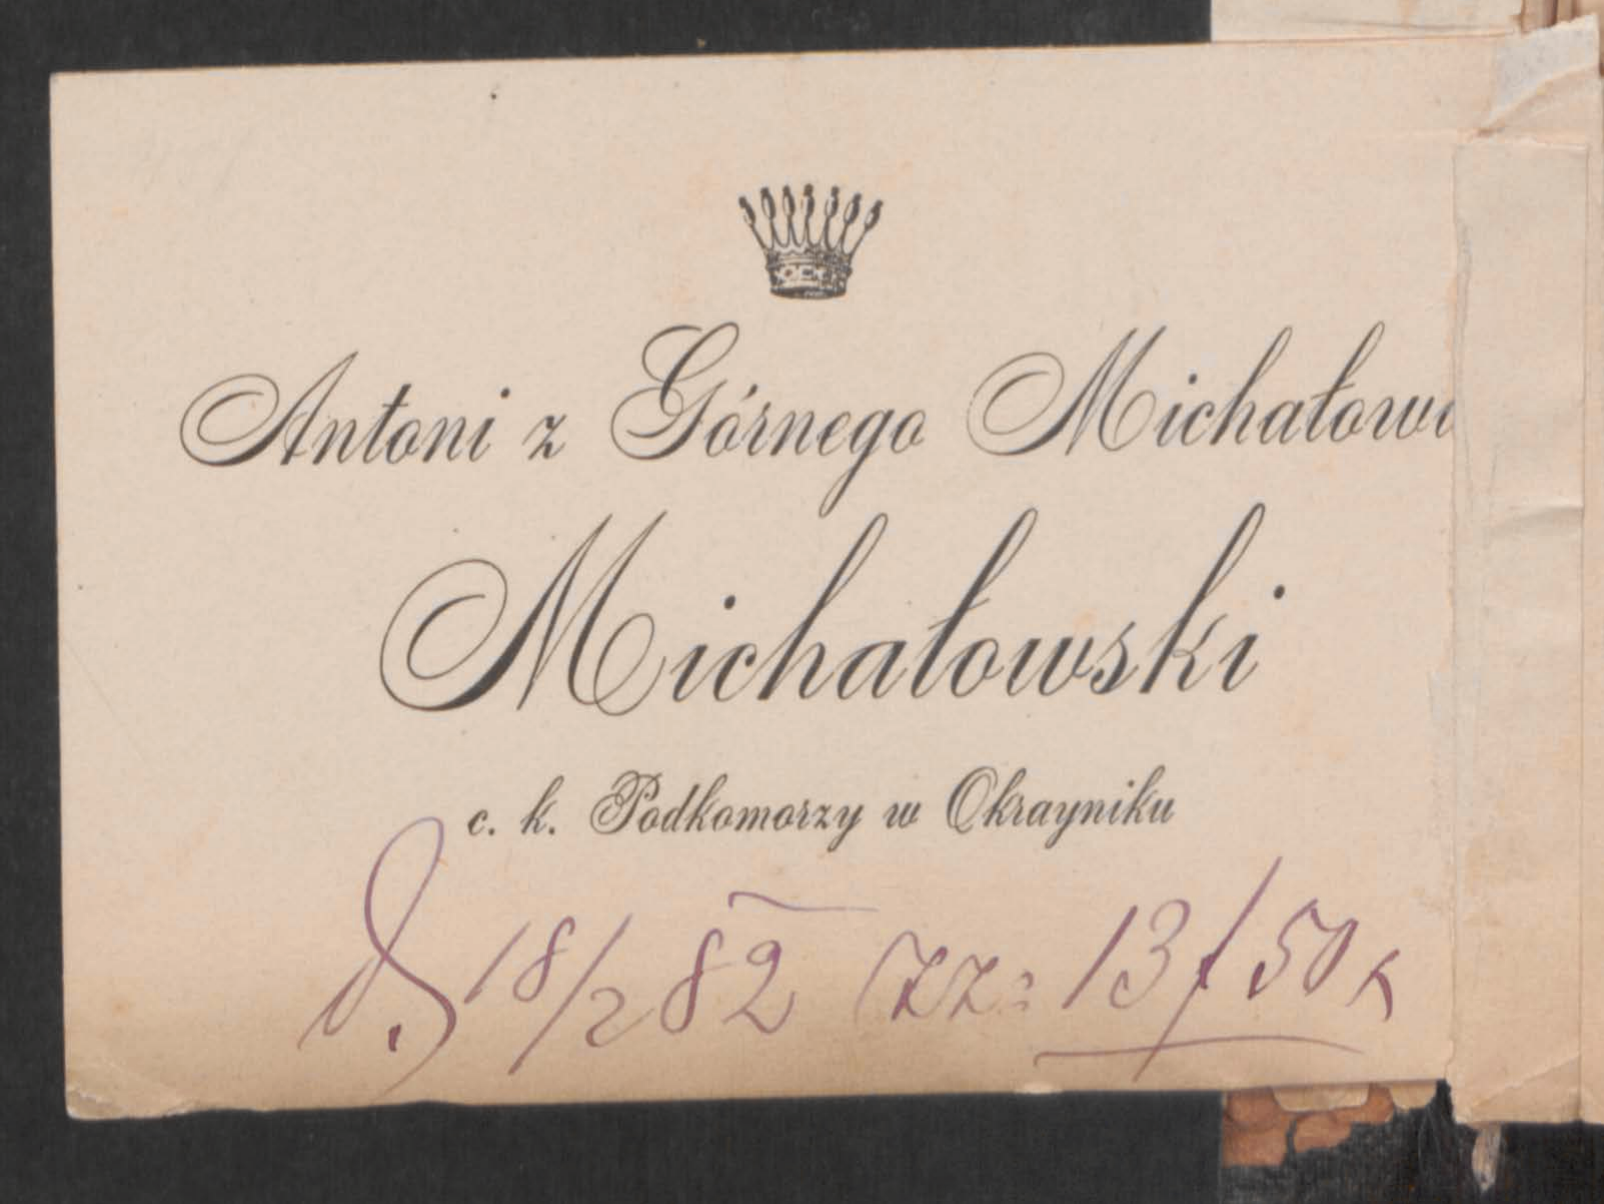 Antoni z Górnego Michałowa
Michałowski
c. k. Podkomorzy w Okrayniku
18/2 82 13f 50k